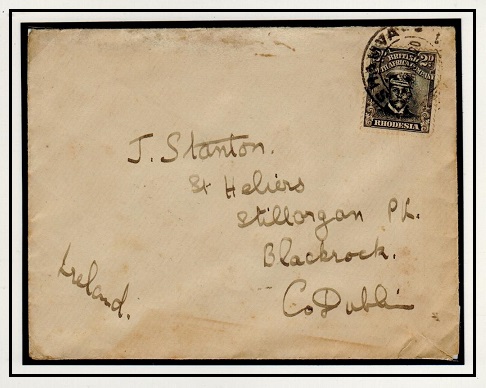 2D 2D
BRITISH
SOUTH AFRICA COMPANY
RHODESIA
J. Stanton.
St Heliers
Stillorgan Pk.
Blackrock.
Co Dublin
Ireland.